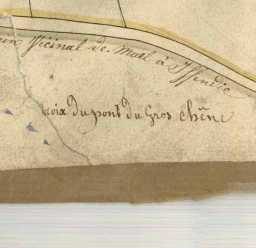 in Vicinal de Mael à Iffendic
croix du pont du Gros chêne